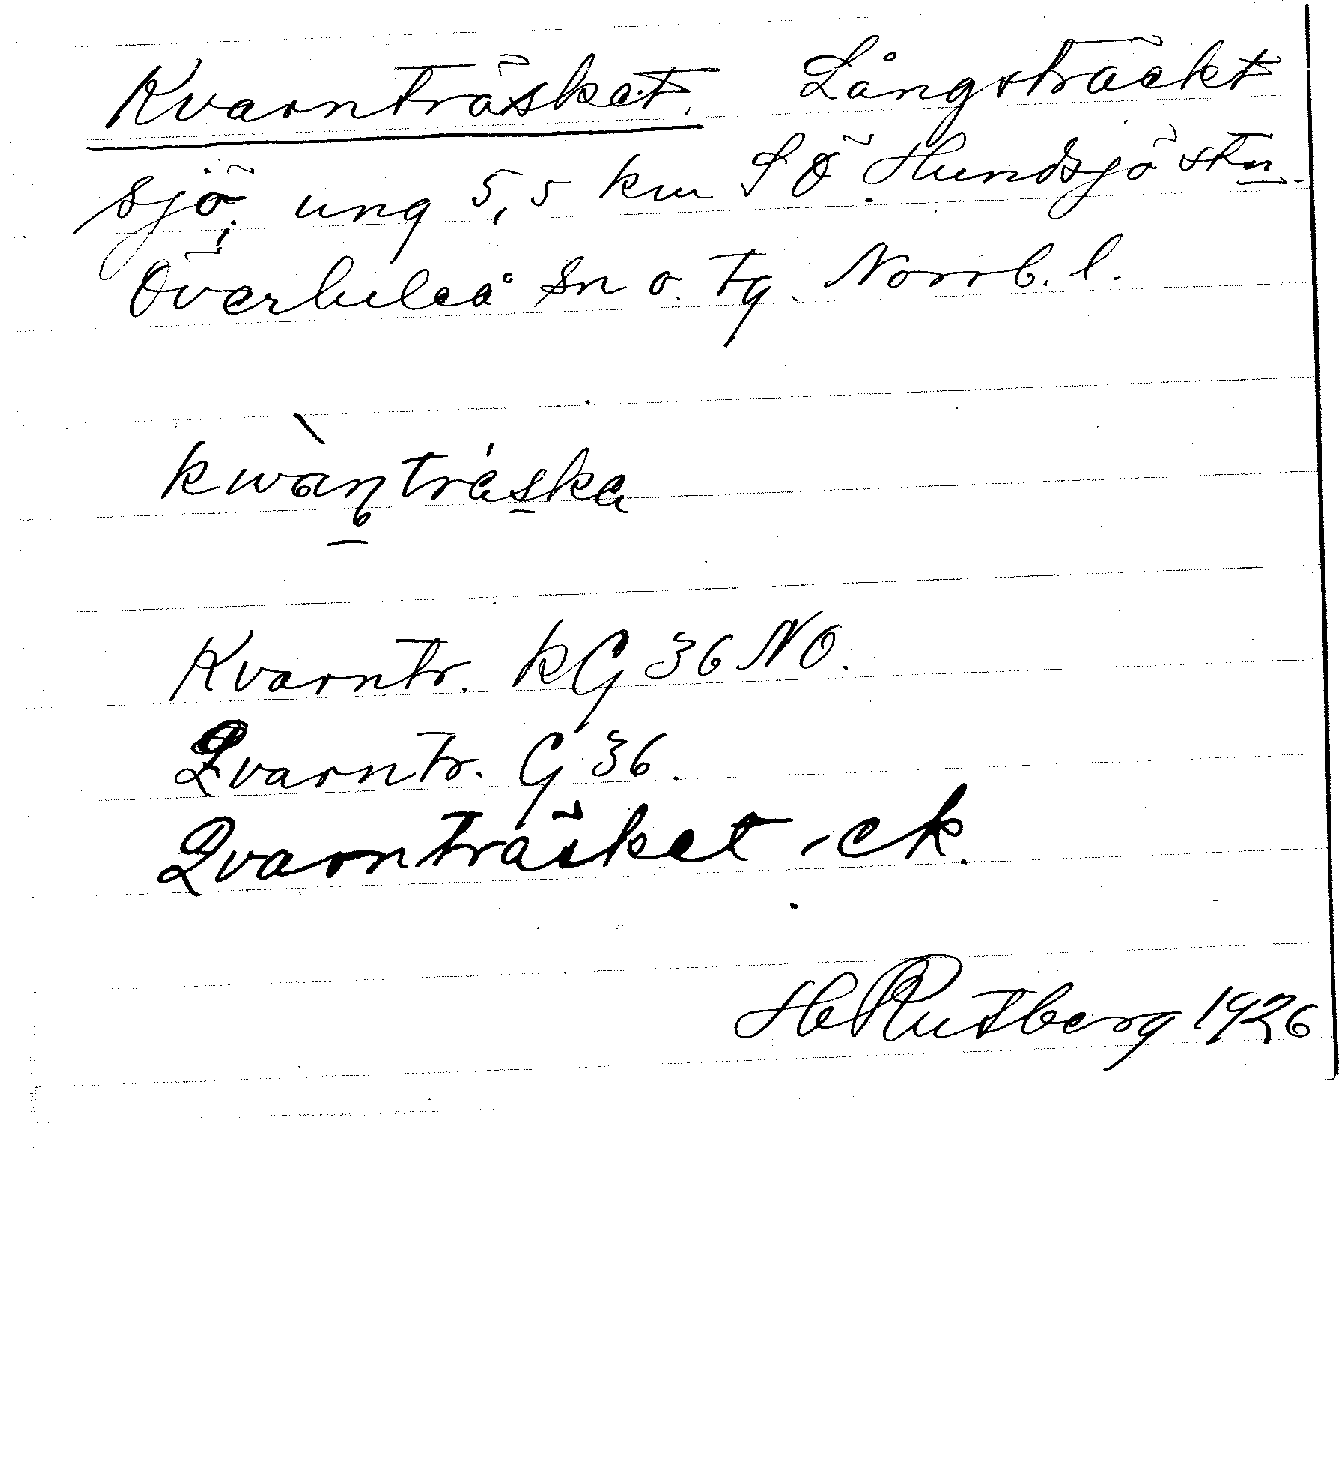 Kvarnträsket. Långsträckt
sjö, ung 5,5 km SÖ. Hundsjö stn.
Överluleå sn o. tg. Norrb. l.
kwàṇtráska
Kvarntr. kG 36 NO.
Qvarntr. G 36.
Qvarnträsket -ck.
H Rutberg 1926